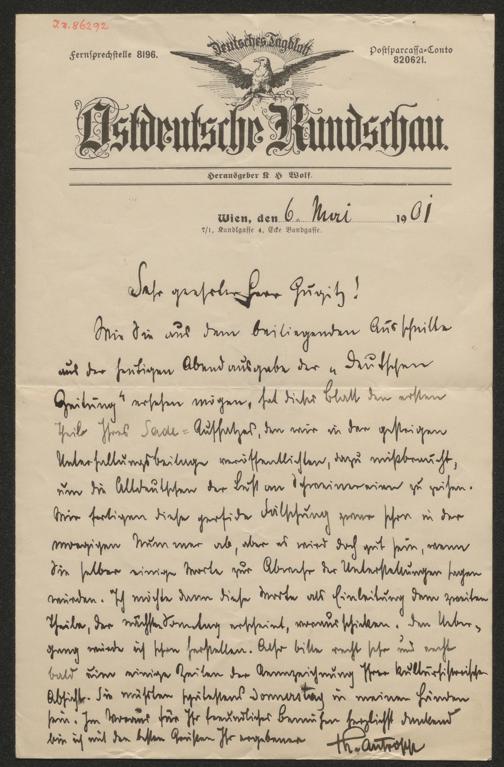 I.N. 86292
Deutsches Tagblatt
Fernsprechstelle 8196.
Postsparcassa-Conto
820621.
Ostdeutsche Rundschau.
Herausgeber K H Wolf.
Wien, den 6. Mai 1901
7/1, Kandlgasse 4, Ecke Bandgasse.
Sehr geehrter Herr Gugitz!
Wie Sie aus dem beiliegenden Ausschnitte
aus der heutigen Abendausgabe der „Deutschen
Zeitung" ersehen mögen, hat dieses Blatt den ersten
Theil Ihres Sade-Aufsatzes, den wir in der gestrigen
Unterhaltungsbeilage veröffentlichten, dazu mißbraucht,
um die Alldeutschen der Lust an Schweinereien zu zeihen.
Wir fertigen diese perfide Fälschung zwar schon in der
morgigen Nummer ab, aber es wird doch gut sein, wenn
Sie selber einige Worte zur Abwehr der Unterstellungen sagen
würden. Ich möchte dann diese Worte als Einleitung dem zweiten
Theile, der nächsten Sonntag erscheint, vorausschicken. Den Ueber-
gang würde ich schon herstellen. Also bitte recht sehr und recht
bald um einige Zeilen der Kennzeichnung Ihrer kulturhistorischen
Absicht. Sie müßten spätestens Donnerstag in meinen Händen
sein. Im Voraus für Ihr freundliches Bemühen herzlichst dankend
bin ich mit den besten Grüßen Ihr ergebener
Th. Antropp